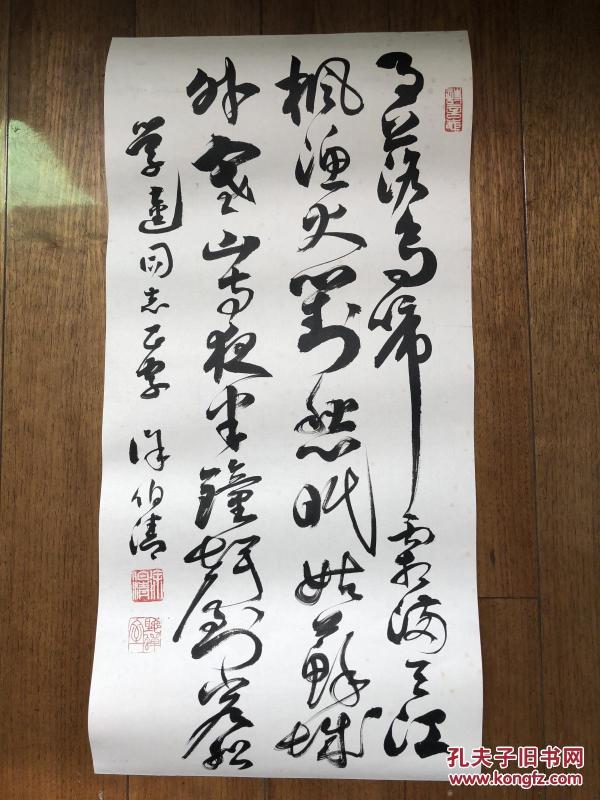 月落乌啼霜满天江
枫渔火对愁眠姑苏城
外寒山寺夜半钟声到客船
学达同志正字 徐伯清
孔夫子旧书网
www.kongfz.com